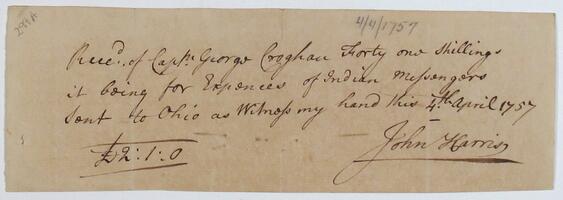 299A
4/4/1757
Rece.d of Cap.tn George Croghan Forty one Shillings
it being for Expences of Indian Messengers
Sent to Ohio as Witness my hand this 4th April 1757
£2:1:0
John Harris